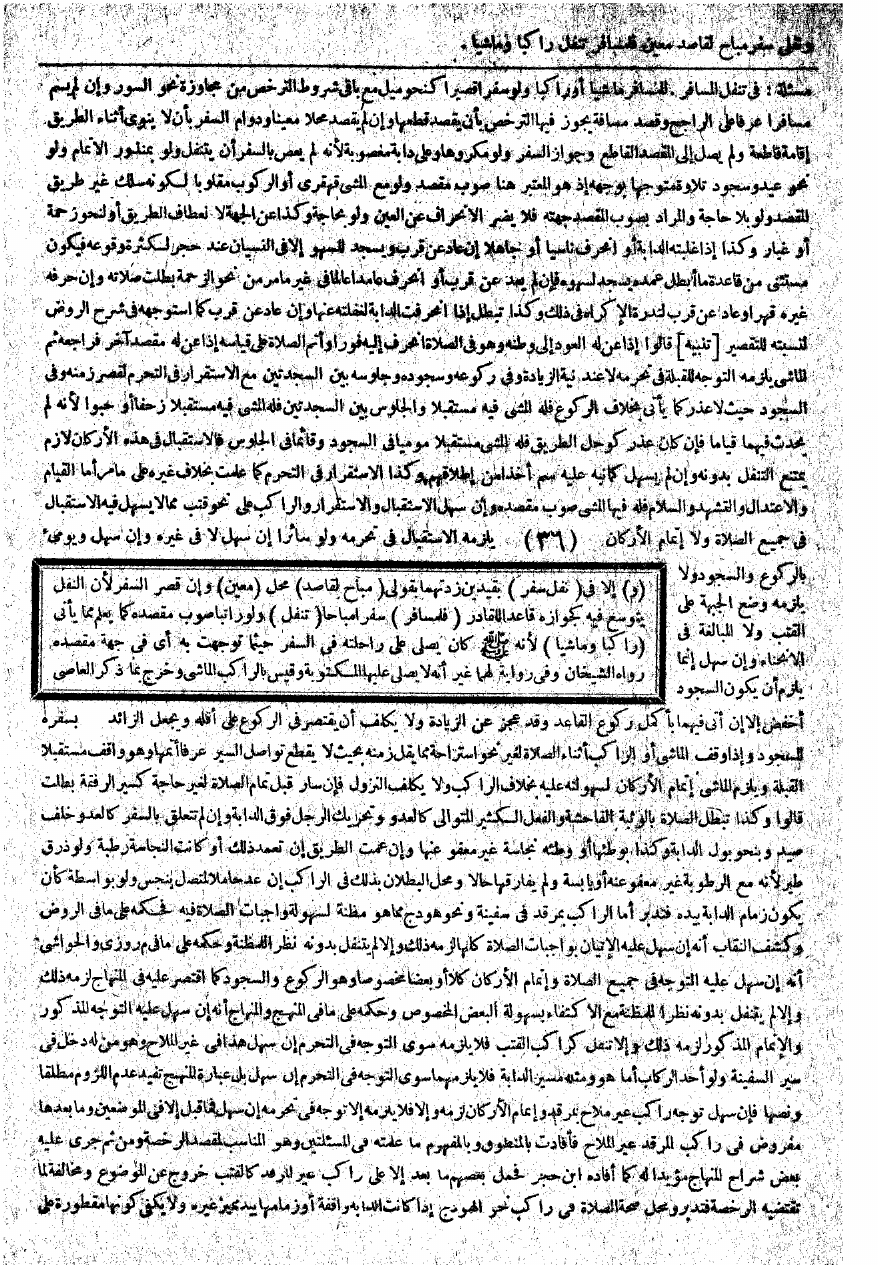 وفى سفر مباح لقاصد معين فلمسافر تنفل راكبا وماشيا .
مسئلة : فى تنفل المسافر . للمسافر ماشيا أو راكبا ولو سفرا قصيرا كنحو ميل مع باقى شروط الترخص من مجاوزة نحو السور وإن لم يسم
مسافرا عرفا على الراجح وقصد مسافة يجوز فيها الترخص بأن يقصد قطعها وإن لم يقصد محلا معينا ودوام السفر بأن لا ينوى أثناء الطريق
إقامة قاطعة ولم يصل إلى المقصد القاطع وجواز السفر ولو مكروها وعلى دابة مغصوبة لأنه لم يعص بالسفر أن يتنفل ولو بمنذور الاتمام ولو
نحو عيد وسجود تلاوة متوجها بوجهه إذ هو المعتبر هنا صوب مقصد ولو مع المشى قهقرى أو الركوب مقلوبا لكونه سلك غير طريق
المقصد ولو بلا حاجة والمراد بصوب المقصد جهته فلا يضر الانحراف عن العين ولو بحاجة وكذا عن الجهة لا نعطاف الطريق أو لنحو زحمة
أو غبار وكذا إذا غلبته الدابة أو انحرف ناسيا أو جاهلا إن عاد عن قرب ويسجد للسهو إلا فى النسيان عند حجر لكثرة وقوعه فيكون
مستثنى من قاعدة ما أبطل عمده يسجد لسهوه فإن لم يعد عن قرب أو انحرف عامدا عالما فى غير مامر من نحو الزحمة بطلت صلاته وإن حرفه
غيره قهرا وعاد عن قرب لندرة الإكراه فى ذلك وكذا تبطل إذا انحرفت الدابة لغفلته عنها وإن عاد عن قرب كما استوجهه فى شرح الروض
لنسبته للتقصير [تنبيه] قالوا إذا عن له العود إلى وطنه وهو فى الصلاة انحرف إليه فورا وأتم الصلاة على قياسه إذا عن له مقصد آخر فراجعه ثم
الماشى يلزمه التوجه للقبلة فى تحرمه لا عند نية الزيادة وفى ركوعه وسجوده وجلوسه بين السجدتين مع الاستقرار فى التحرم لقصر زمنه وفى
السجود حيث لا عذر كما يأتى بخلاف الركوع فله المشى فيه مستقبلا والجلوس بين السجدتين فله المشى فيه مستقبلا زحفا أو حبوا لأنه لم
يحدث فيهما قياما فإن كان عذر كوحل الطريق فله المشى مستقبلا موميا فى السجود وقائما فى الجلوس فالاستقبال فى هذه الأركان لازم
يمتنع التنفل بدونه وإن لم يسهل كما نبه عليه سم أخذا من إطلاقهم وكذا الاستقرار فى التحرم كما علمت بخلاف غيره على مامر أما القيام
والاعتدال والتشهد والسلام فله فيها المشى صوب مقصده وإن سهل الاستقبال والاستقرار والراكب على نحو قتب مما لا يسهل فيه الاستقبال
فى جميع الصلاة ولا إتمام الأركان (٣٦) يلزمه الاستقبال فى تحرمه ولو سائرا إن سهل لا فى غيره وإن سهل ويومىء
بالركوع والسجود ولا
يلزمه وضع الجبهة على
القتب ولا المبالغة فى
الانحناء وإن سهل إنما
يلزم أن يكون السجود
(و) إلا فى (نفل سفر) بقيدين زدتهما بقولى (مباح لقاصد) محل (معين) وإن قصر السفر لأن النفل
يتوسع فيه كجوازه قاعدا للقادر (فلمسافر) سفرا مباحا (تنفل) ولو راتبا صوب مقصده كما يعلم مما يأتى
(راكبا وماشيا) لأنه ﷺ كان يصلى على راحلته فى السفر حيثما توجهت به أى فى جهة مقصده
رواه الشيخان وفى رواية لهما غير أنه لا يصلى عليها المكتوبة وقيس بالراكب الماشى وخرج بما ذكر العاصى
أخفض إلا إن أتى فيهما بأكمل ركوع القاعد وقد عجز عن الزيادة ولا يكلف أن يقتصر فى الركوع على أقله ويجعل الزائد بسفره
للسجود وإذا وقف الماشى أو الراكب أثناء الصلاة لغير نحو استراحة مما يقل زمنه بحيث لا يقطع تواصل السير عرفا أتمها وهو واقف مستقبلا
القبلة ويلزم الماشى إتمام الأركان لسهولته عليه بخلاف الراكب ولا يكلف النزول فإن سار قبل تمام الصلاة لغير حاجة كسير الرفقة بطلت
قالوا وكذا تبطل الصلاة بالوثبة الفاحشة والفعل الكثير المتوالى كالعدو وتحريك الرجل فوق الدابة وإن لم تتعلق بالسفر كالعدو خلف
صيد وبنحو بول الدابة وكذا بوطئها أو وطئه نجاسة غير معفو عنها وإن عمت الطريق إن تعمد ذلك أو كانت النجاسة رطبة ولو ذرق
طير لأنه مع الرطوبة غير معفو عنه أو يابسة ولم يفارقها حالا ومحل البطلان بذلك فى الراكب إن عد حاملا لمتصل بنجس ولو بواسطة كأن
يكون زمام الدابة بيده فتدبر أما الراكب بمرقد فى سفينة ونحو هودج مما هو مظنة لسهولة واجبات الصلاة فيه فحكمه على مافى الروض
وكشف النقاب أنه إن سهل عليه الإتيان بواجبات الصلاة كلها لزمه ذلك وإلا لم يتنفل بدونه نظرا للمظنة وحكمه على مافى م ر وزى والحواشى
أنه إن سهل عليه التوجه فى جميع الصلاة وإتمام الأركان كلا أو بعضا مخصوصا وهو الركوع والسجود كما اقتصر عليه فى المنهاج لزمه ذلك
وإلا لم يتنفل بدونه نظرا للمظنة مع الاكتفاء بسهولة البعض المخصوص وحكمه على مافى المنهج والمنهاج أنه إن سهل عليه التوجه المذكور
والإتمام المذكور لزمه ذلك وإلا تنفل كراكب القتب فلا يلزمه سوى التوجه فى التحرم إن سهل هذا فى غير الملاح وهو من له دخل فى
سير السفينة ولو أحد الركاب أما هو ومثله مسير الدابة فلا يلزمهما سوى التوجه فى التحرم إن سهل بل عبارة المنهج تفيد عدم اللزوم مطلقا
ونصها فإن سهل توجه راكب غير ملاح بمرقد وإتمام الأركان لزمه وإلا فلا يلزمه إلا توجه فى تحرمه إن سهل فما قبل إلا فى الموضعين وما بعدها
مفروض فى راكب المرقد غير الملاح فأفادت بالمنطوق وبالمفهوم ما علمته فى المسئلتين وهو المناسب لمقصد الرخصة ومن ثم جرى عليه
بعض شراح المنهاج مؤيدا له كما أفاده ابن حجر فحمل بعضهم ما بعد إلا على راكب غير المرقد كالقتب خروج عن الموضوع ومخالفة لما
تقتضيه الرخصة فتدبر ومحل صحة الصلاة فى راكب نحو الهودج إذا كانت الدابة واقفة أو زمامها بيد مميز غيره ولا يكفى كونها مقطورة على